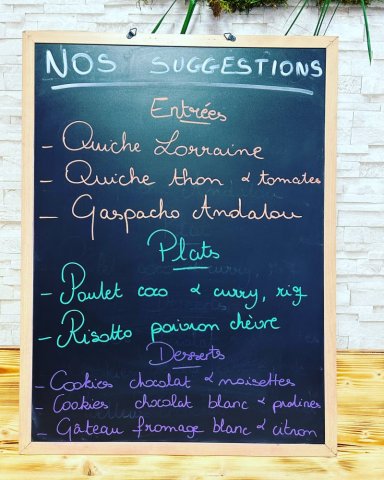 NOS SUGGESTIONS
Entrées
- Quiche Lorraine
- Quiche thon & tomates
- Gaspacho Andalou
Plats
- Poulet coco & curry, riz
- Risotto poivron chèvre
Desserts
- Cookies chocolat & noisettes
- Cookies chocolat blanc & pralines
- Gâteau fromage blanc & citron